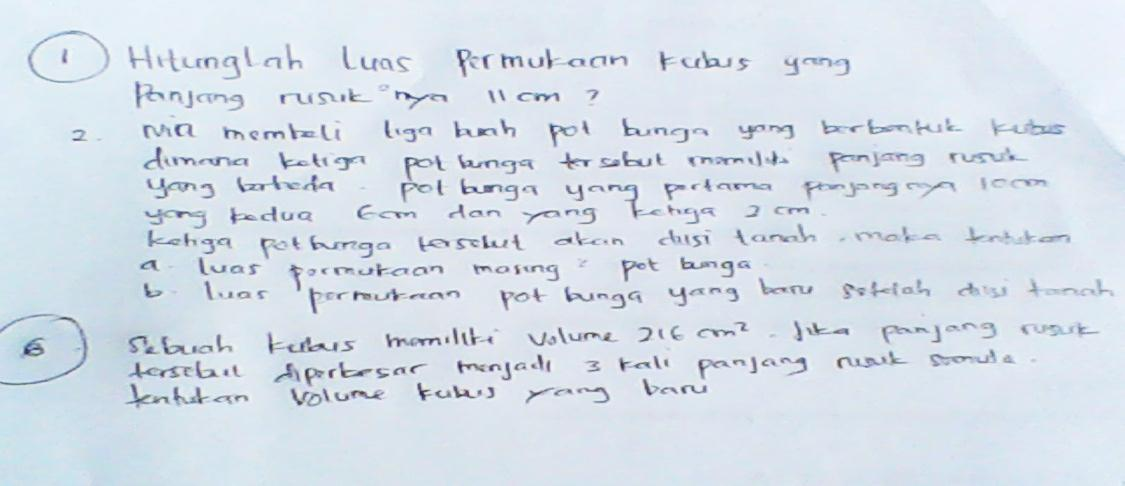 1 Hitunglah luas permukaan kubus yang
panjang rusuk nya 11 cm ?
2. nia membeli tiga buah pot bunga yang berbentuk kubus
dimana ketiga pot bunga tersebut memiliki panjang rusuk
yang berbeda. pot bunga yang pertama panjangnya 10cm
yang kedua 6cm dan yang ketiga cm.
ketiga pot bunga tersebut akan diisi tanah. maka tentukan
a. luas permukaan masing² pot bunga.
b. luas permukaan pot bunga yang baru setelah diisi tanah
Sebuah kubus memiliki volume 216 cm². Jika panjang rusuk
tersebut diperbesar menjadi 3 kali panjang rusuk semula.
tentukan volume kubus yang baru